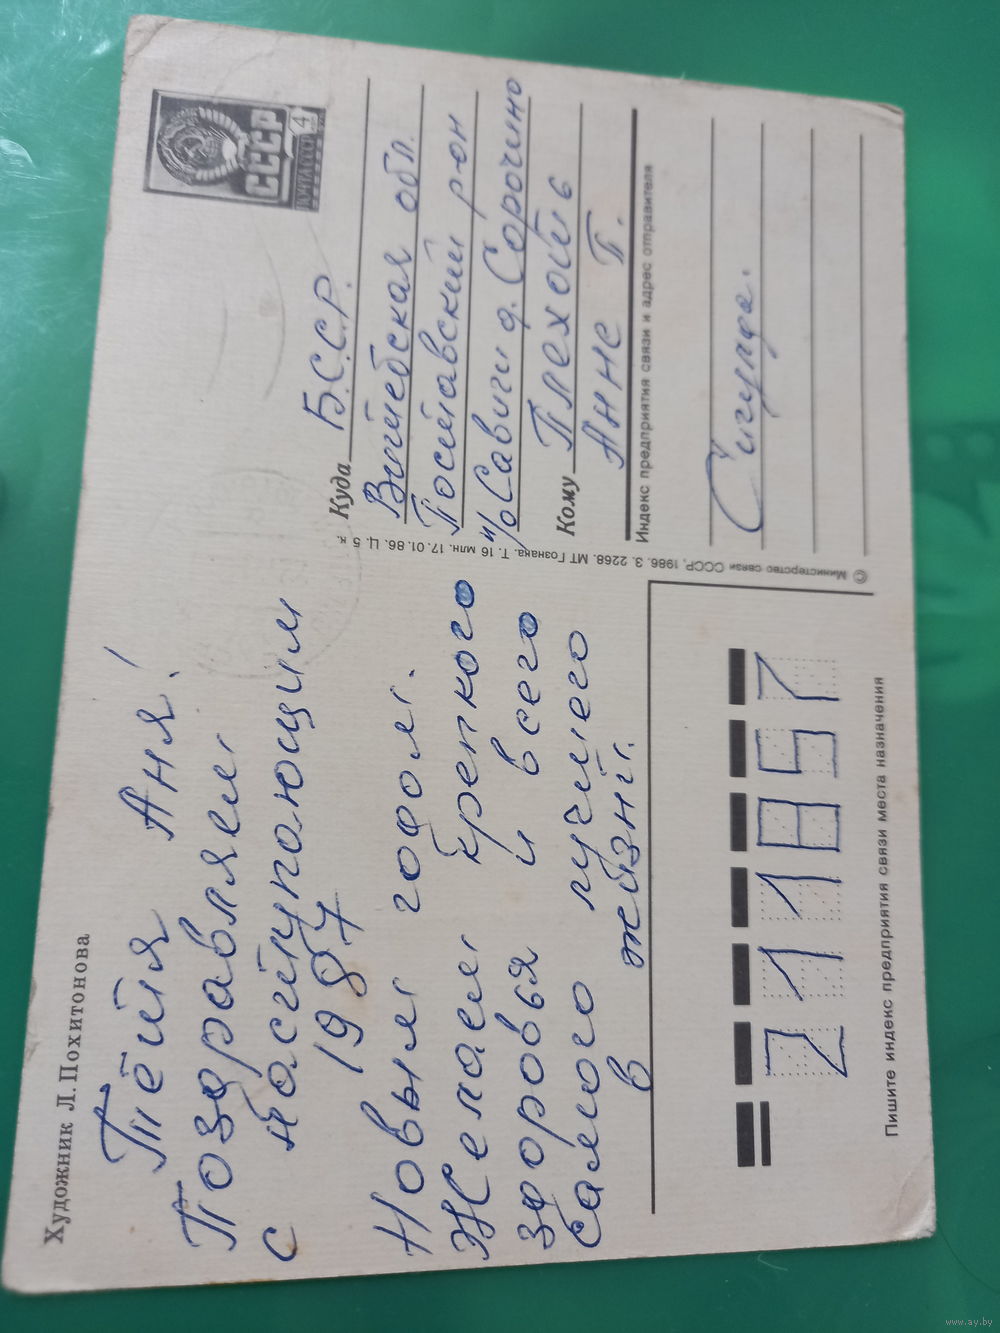 Художник Л. Похитонова
Тётя Аня!
Поздравляем
с наступающим
1987
Новым годом.
Желаем крепкого
здоровья и всего
самого лучшего
в жизни.
ПОЧТА СССР 4
СССР
Куда Б.С.С.Р.
Витебская обл.
Поставский р-он
п/о Савичи д. Сорочино
Кому
Анне П.
Индекс предприятия связи и адрес отправителя
© Министерство связи СССР, 1986. З. 2268. МТ Гознака. Т. 16 млн. 17.01.86. Ц. 5 к.
211857
Пишите индекс предприятия связи места назначения
www.ay.by